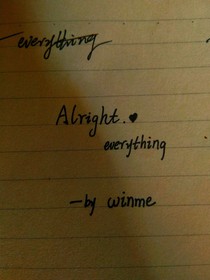 everything
Alright.♥
everything
—by winme